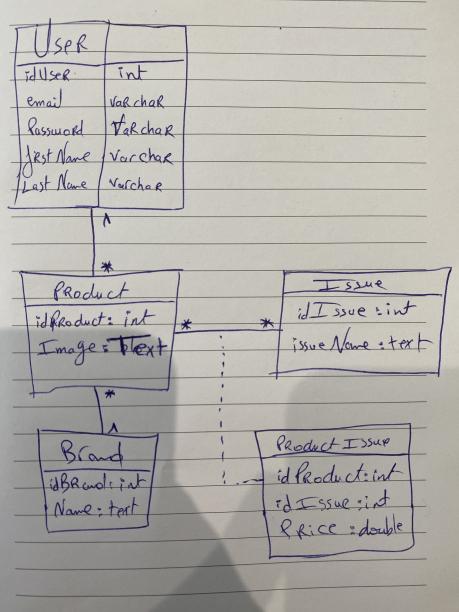 User
idUser int
email varchar
Password Varchar
first Name varchar
Last Name varchar
1
*
Product
idProduct: int
Image: Text
* *
Issue
idIssue: int
issueName: text
*
1
Brand
idBrand: int
Name: text
Product Issue
idProduct: int
idIssue: int
Price: double